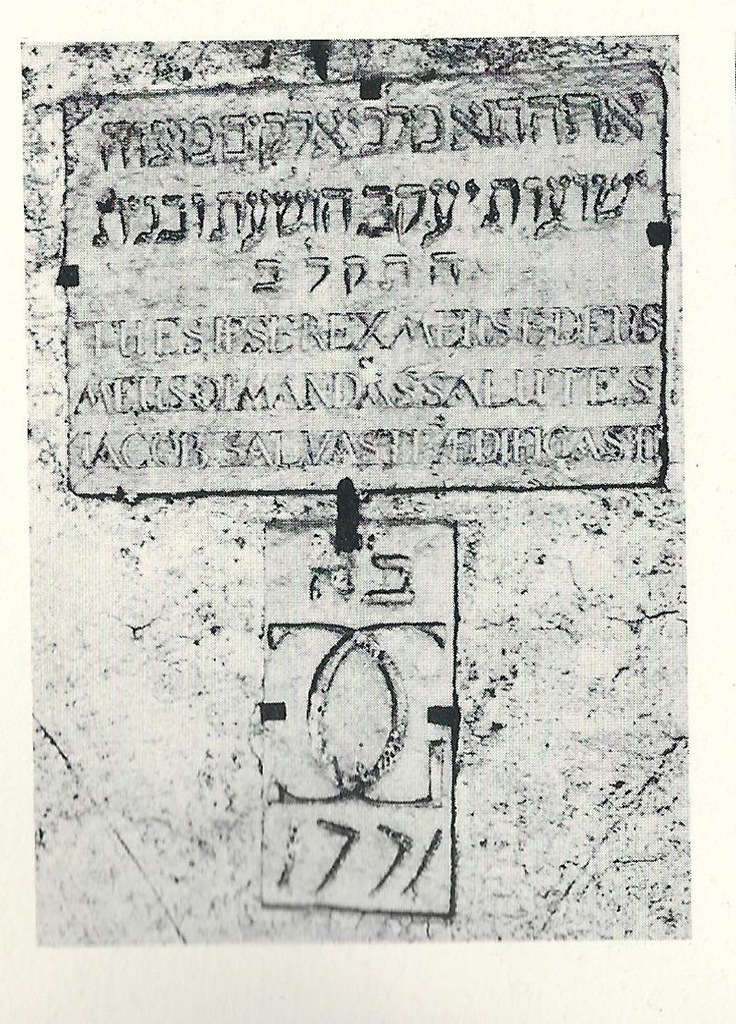 אתה הוא מלכי אלקים צוה
ישועות יעקב הושעת ובנית
ה ת ק ל ב
TU ES IPSE REX MEUS E DEUS
MEUS QI MANDAS SALUTES
IACOB SALVASTI ÆDIFICASTI
1771